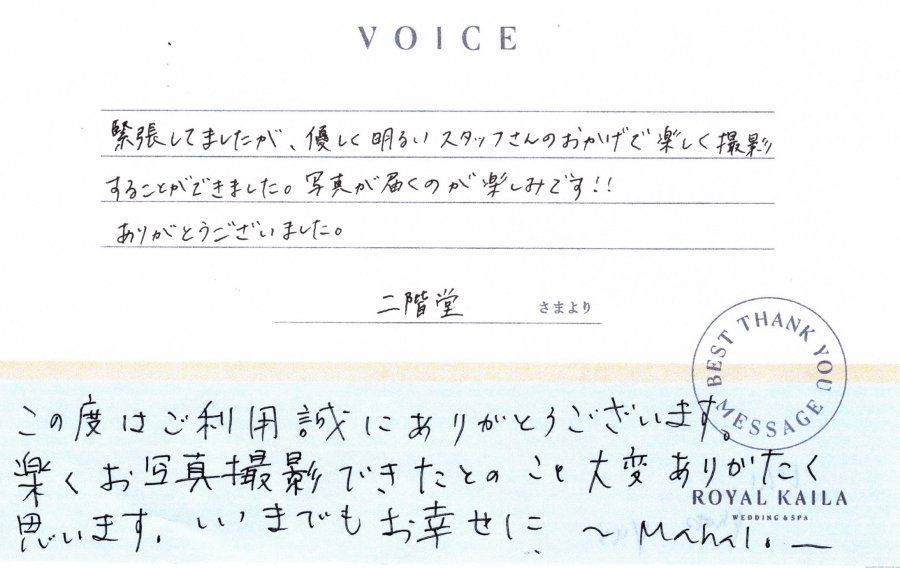 VOICE
緊張してましたが、優しく明るいスタッフさんのおかげで楽しく撮影
することができました。写真が届くのが楽しみです!!
ありがとうございました。
二階堂 さまより
BEST THANK YOU MESSAGE
この度はご利用誠にありがとうございます。
楽くお写真撮影できたとのこと大変ありがたく
ROYAL KAILA
WEDDING & SPA
思います。いつまでもお幸せに ~Mahalo~